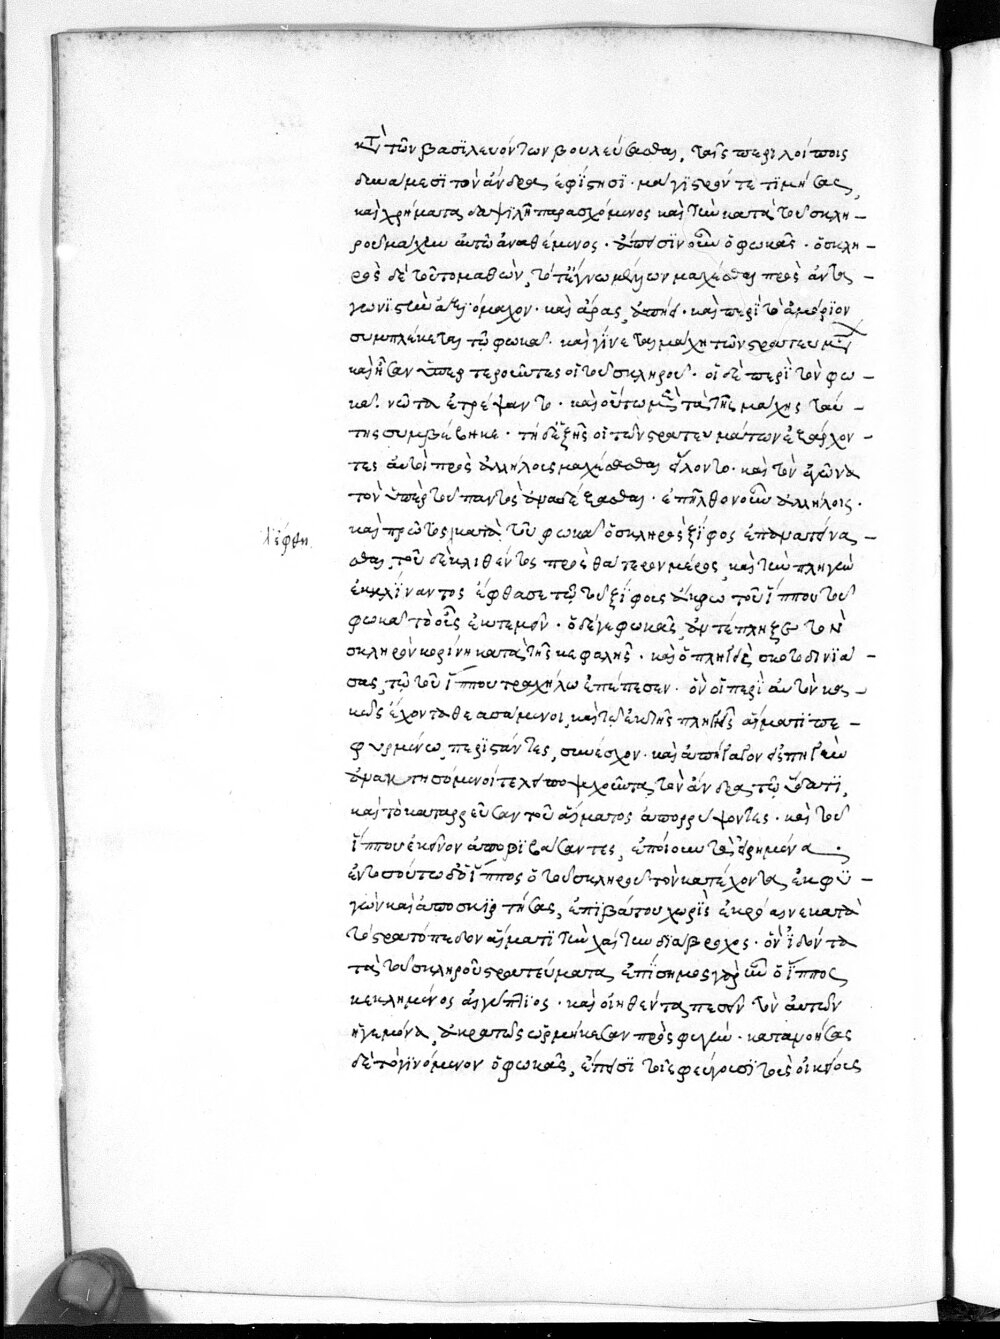 κατὰ τῶν βασιλευόντων βουλεύσασθαι, ταῖς περιλοίποις
δυνάμεσι τὸν ἄνδρα ἐφίστησι· μάγιστρόν τε τιμήσας,
καὶ χρήματα δαψιλῆ παρασχόμενος καὶ τὴν κατὰ τοῦ σκλη-
ροῦ μάχην αὐτῷ ἀναθέμενος. ἄπεισιν οὖν ὁ φωκᾶς· ὁ σκλη-
ρὸς δὲ τοῦτο μαθὼν, τότε ἔγνω μέλλων μάχεσθαι πρὸς ἀντα-
γωνιστὴν ἀξιόμαχον· καὶ ἄρας, ἄπεισι· καὶ περὶ τὸ ἀμόριον
συμπλέκεται τῷ φωκᾷ· καὶ γίνεται μάχη τῶν στρατευμάτων
καὶ ἦσαν ὑπερτεροῦντες οἱ τοῦ σκληροῦ· οἱ δὲ περὶ τὸν φω-
κᾶ. νῶτα ἐτρέψαντο· καὶ οὕτω μὲν τὰ τῆς μάχης ταύ-
της συμβέβηκε· τῇ δ' ἑξῆς οἱ τῶν στρατευμάτων ἐξάρχον-
τες αὐτοὶ πρὸς ἀλλήλοις μαχέσασθαι εἵλοντο· καὶ τὸν ἀγῶνα
τὸν ὑπὲρ τοῦ παντὸς ἀναδέξασθαι· ἐπῆλθον οὖν ἀλλήλοις·
καὶ πρῶτος κατὰ τοῦ φωκᾶ ὁ σκληρὸς ξίφος ἐπαμαπείνα-
σθαι, τοῦ δὲ κλιθέντος πρὸς θάτερον μέρος, καὶ τὴν πληγὴν
ἐκκλίναντος ἔφθασε τῷ τοῦ ξίφους ἄκρῳ τοῦ ἵππου τοῦ
φωκᾶ τὸ οὖς ἐκτεμεῖν· ὁ δέ γε φωκᾶς, ἀντέπληξε τὸν
σκληρὸν κορύνῃ κατὰ τῆς κεφαλῆς· καὶ ὁ πληγεὶς σκοτοδινιά-
σας, τῷ τοῦ ἵππου τραχήλῳ ἐπέπεσεν· ὃν οἱ περὶ αὐτὸν κα-
κῶς ἔχοντα θεασάμενοι, καὶ τῷ ἐκ τῆς πληγῆς αἵματι πε-
φυρμένῳ, περιστάντες, συνέσχον· καὶ ἀπήγαγον ἐπὶ πηγὴν
ἀνακτησόμενοί τε λειποψυχοῦντα τὸν ἄνδρα τῷ ὕδατι,
καὶ τὸ καταρρεῦσαν τοῦ αἵματος ἀπορρύψοντες· καὶ τοῦ
ἵππου ἐκεῖνον ἀποβιβάσαντες, ἐποίουν τὰ εἰρημένα.
ἐν τοσούτῳ δὲ ὁ ἵππος ὁ τοῦ σκληροῦ τὸν κατέχοντα ἐκφυ-
γὼν καὶ ἀποσκιρτήσας, ἐπιβάτου χωρὶς ἐκρόαινε κατὰ
τὸ στρατόπεδον αἵματι τὴν χαίτην διάβροχος· ὃν ἰδόντα
τὰ τοῦ σκληροῦ στρατεύματα, ἐπίσημος γὰρ ἦν ὁ ἵππος
κεκλημένος αἰγύπτιος· καὶ οἰηθέντα πεσεῖν τὸν αὐτῶν
ἡγεμόνα, ἀκρατῶς ὡρμήκεσαν πρὸς φυγήν· κατανοήσας
δὲ τὸ γινόμενον ὁ φωκᾶς, ἔπεισι τοῖς φεύγουσι τοῖς οἰκείοις